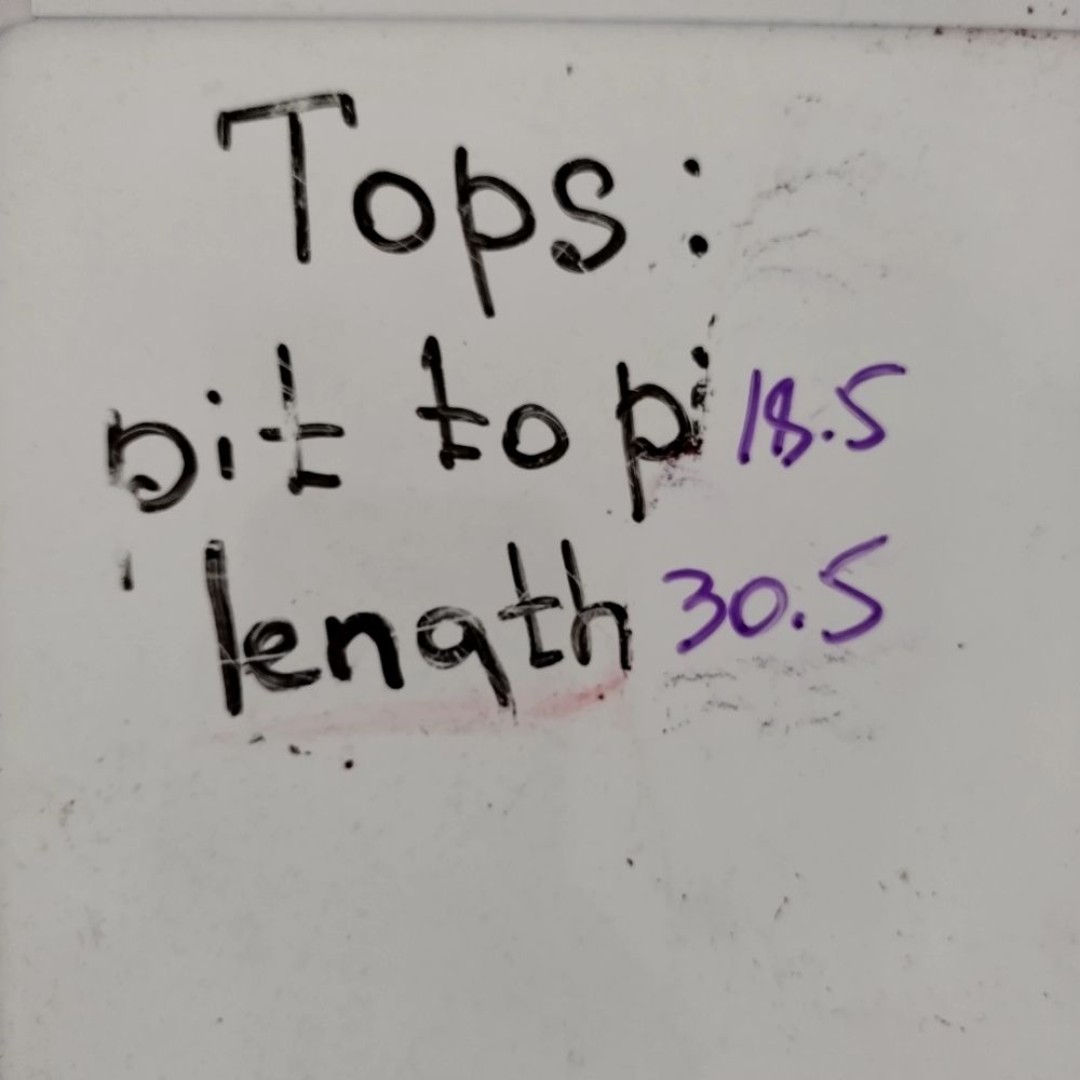 Tops:
pit to pi 18.5
length 30.5